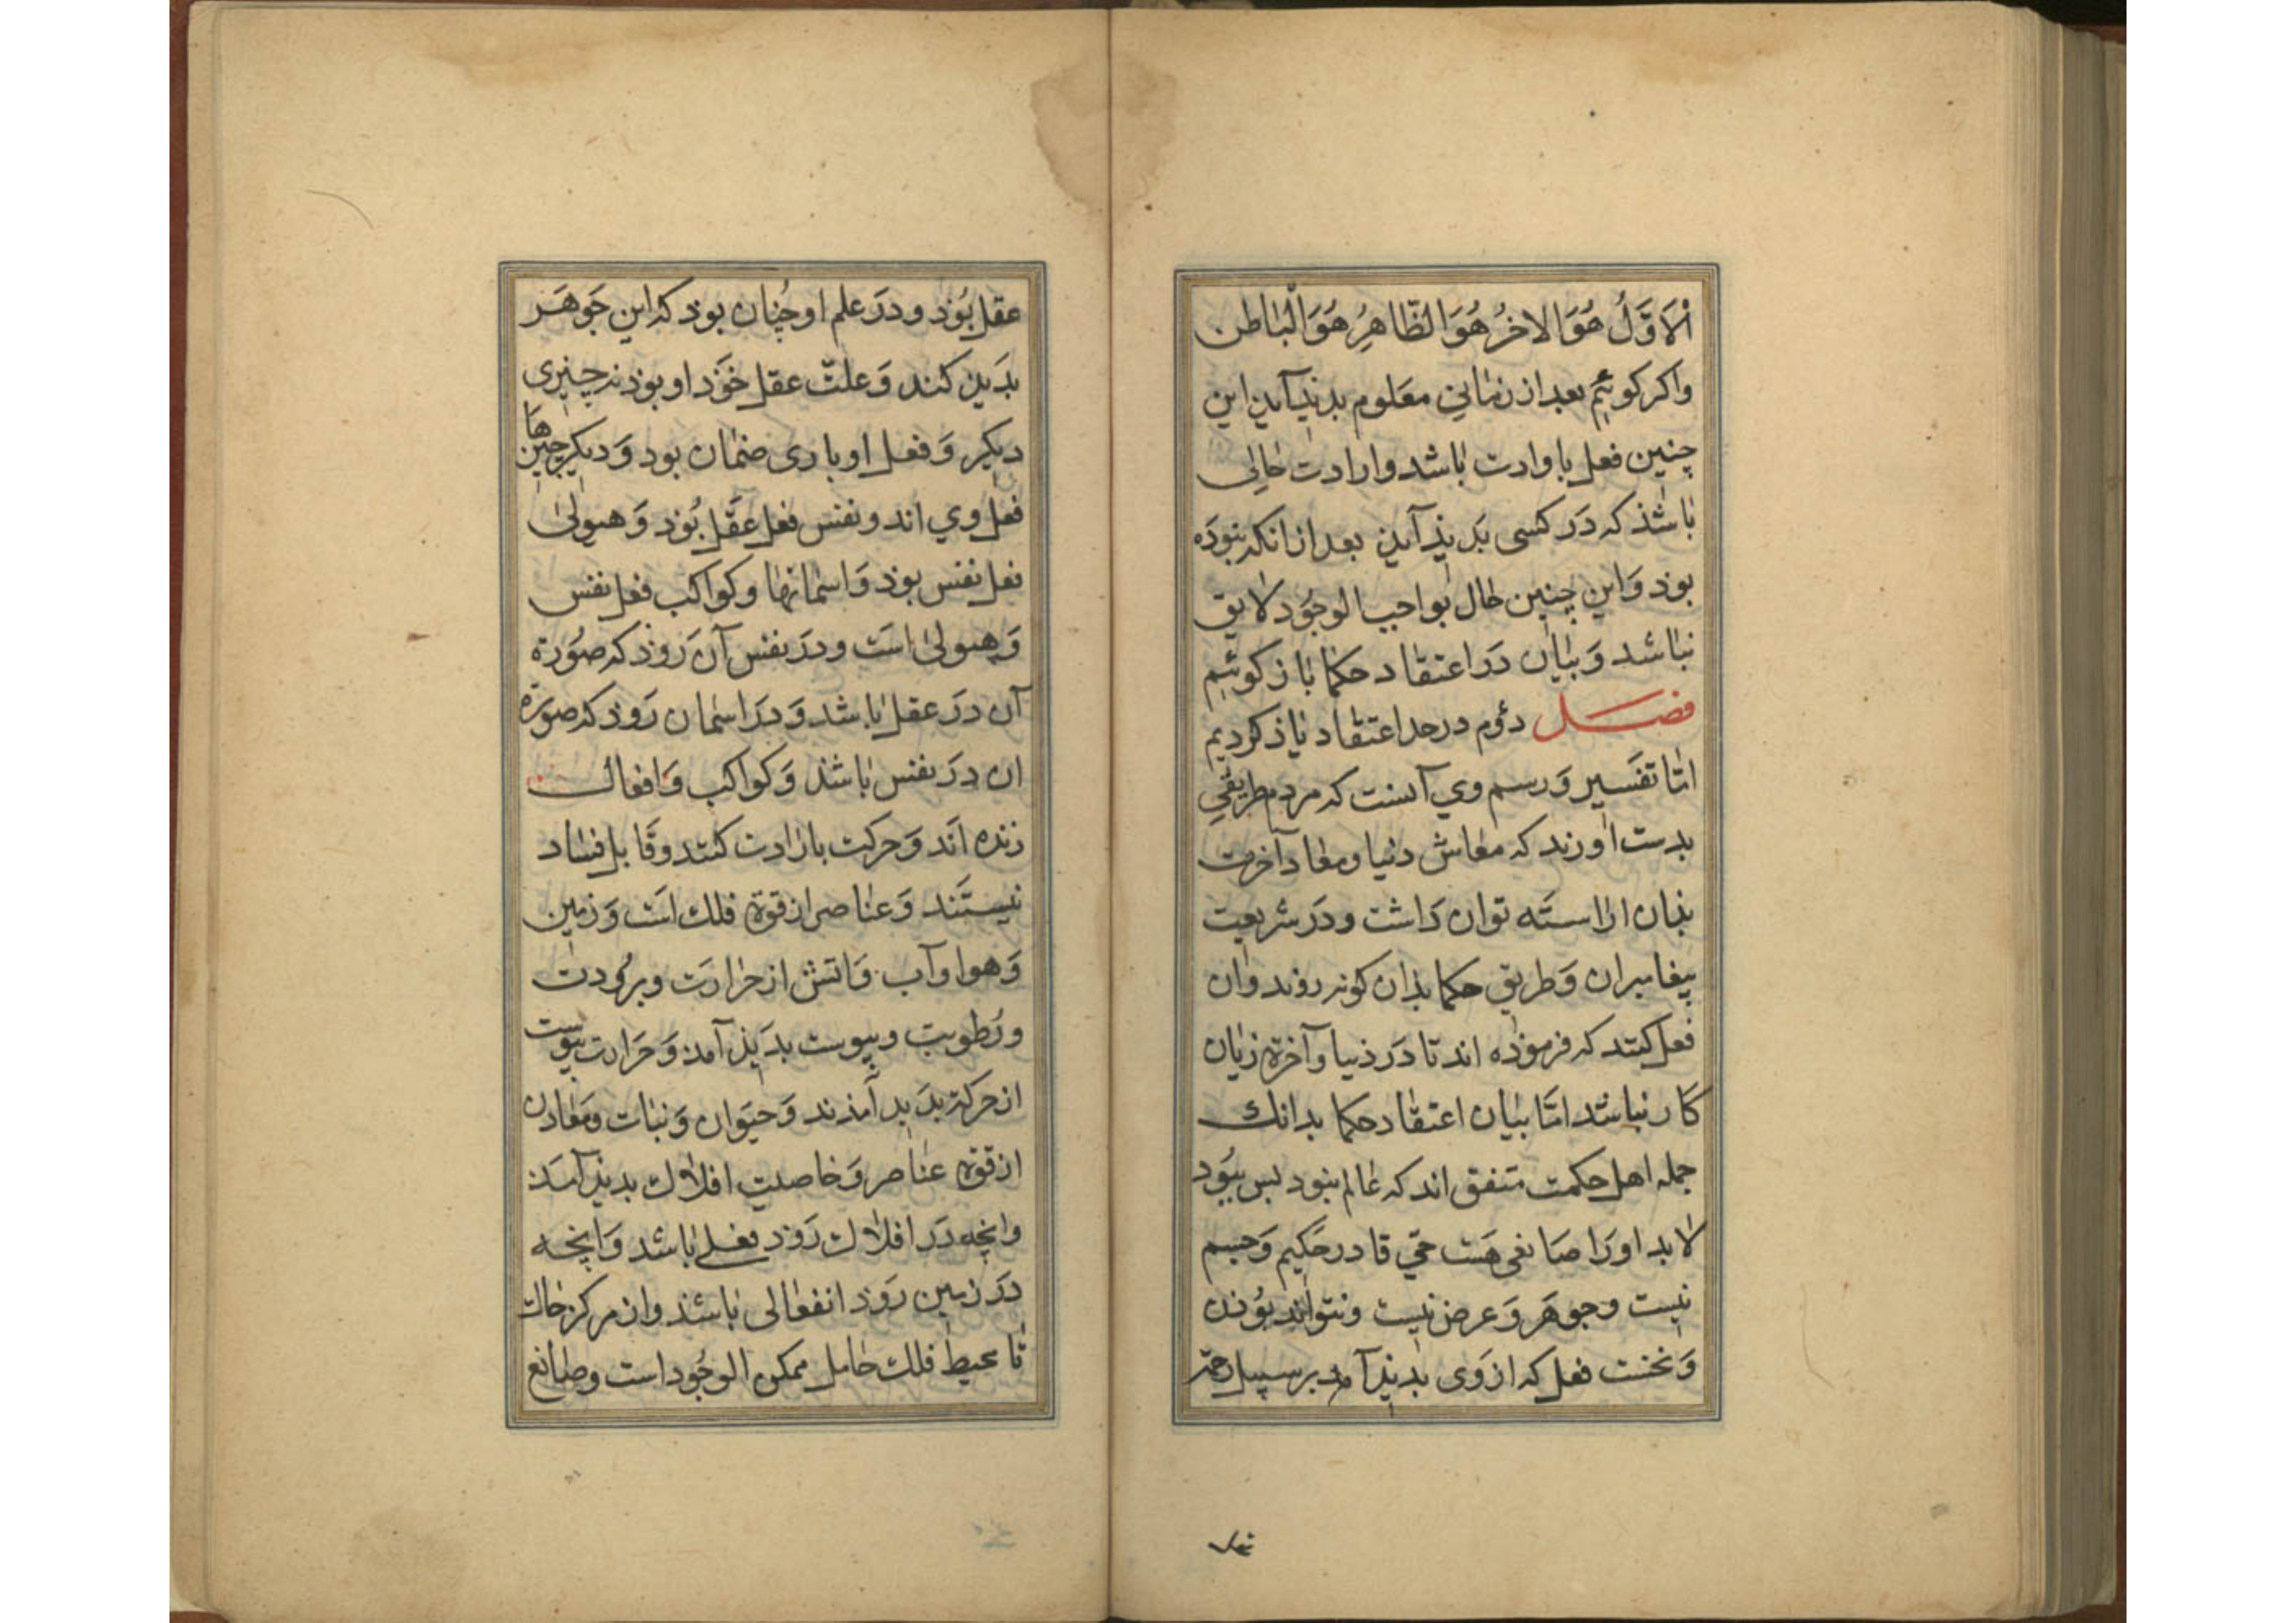 اْلاَوَّلُ هُوَ الاخرُ هُوَ الظّاهِرُ هُوَ الْباطن
واكر كوئيم بعد از زمانى معَلوم بديذ آيذ اين
چنين فعل با وادت باشد وارادت حالى
باشذ كه دَر كسى بَديذ آيذ بعد از انكه نبوذَه
بوذ وَاين چنين حال بواجب الوجوُد لايق
نباشد وَبيان دَر اعتقاد حكما باز كوئيم
فصل دؤم در حد اعتقاد ياذ كرديم
امّا تفسير وَرسم وي آنست كه مردم طريقي
بدست اورند كه معاش دنيا ومعاد آخرت
بذان اراستَه توان دَاشت ودَر شريعت
پيغامبران وَطريق حكما بذان كونه روند وان
فعل كنند كه فرموذه اند تا دَر ذنيا وآخرة زيان
كار نباشد امّا بيان اعتقاد حكما بدانك
جمله اهل حكمت متفق اند كه عالم نبود پس ببوُد
لابد اورَا صانعى هَست حيّ قادر حَكيم وَجسم
نيست وجوهَر وَعرض نيست ونتواند بوُذن
وَنخست فعل كه از وَى بديذ آمد بر سبيل
عقل
عقل بوُذ ودَر علم او چُنان بوذ كه اين جَوهَر
بدَيذ كند وَعلتّ عقل خوَذ او بوذ نه چيزى
ديكر وَفعل او بارى ضمان بود وَديكر چيزها
فعل وي اند ونفس فعل عقَل بُوذ وَهيولىٰ
فعل نفس بوذ وَاسمانها وكواكب فعل نفس
وَهيولىٰ است ودَر نفس آن رَوذ كه صوُرة
آن دَر عقل باشد وَدر اسمان رَوذ كه صورة
ان دَر نفس باشذ وَكواكب وَافعال
زنده اند وَحركت بارادت كنند وقَابل فساد
نيستَند وَعناصر از قوة فلك است وَزمين
وَهوا وآب وَاتش از حرارَت وبرُودت
ورُطوبت ويبوست بدَيذ آمذ وَحَرارت يبوست
از حركة بدَيد آمذند وَحيَوان وَنبات ومَعادن
از قوة عناصر وَخاصيت افلاك بديذ آمَذ
وانچه دَر افلاك رَوذ فعلى باشد وَانچه
دَر زمين رَوَذ انفعالى باشذ واز مركز خاك
تا محيط فلك حامل ممكن الوجوُد است وصانع